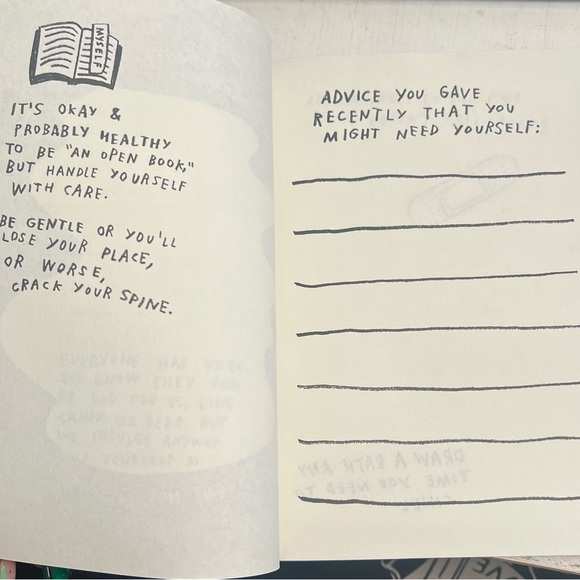 MYSELF
IT'S OKAY &
PROBABLY HEALTHY
TO BE "AN OPEN BOOK,"
BUT HANDLE YOURSELF
WITH CARE.
BE GENTLE OR YOU'LL
LOSE YOUR PLACE,
OR WORSE,
CRACK YOUR SPINE.
ADVICE YOU GAVE
RECENTLY THAT YOU
MIGHT NEED YOURSELF:
DRAW A BATH ANY
TIME YOU NEED TO